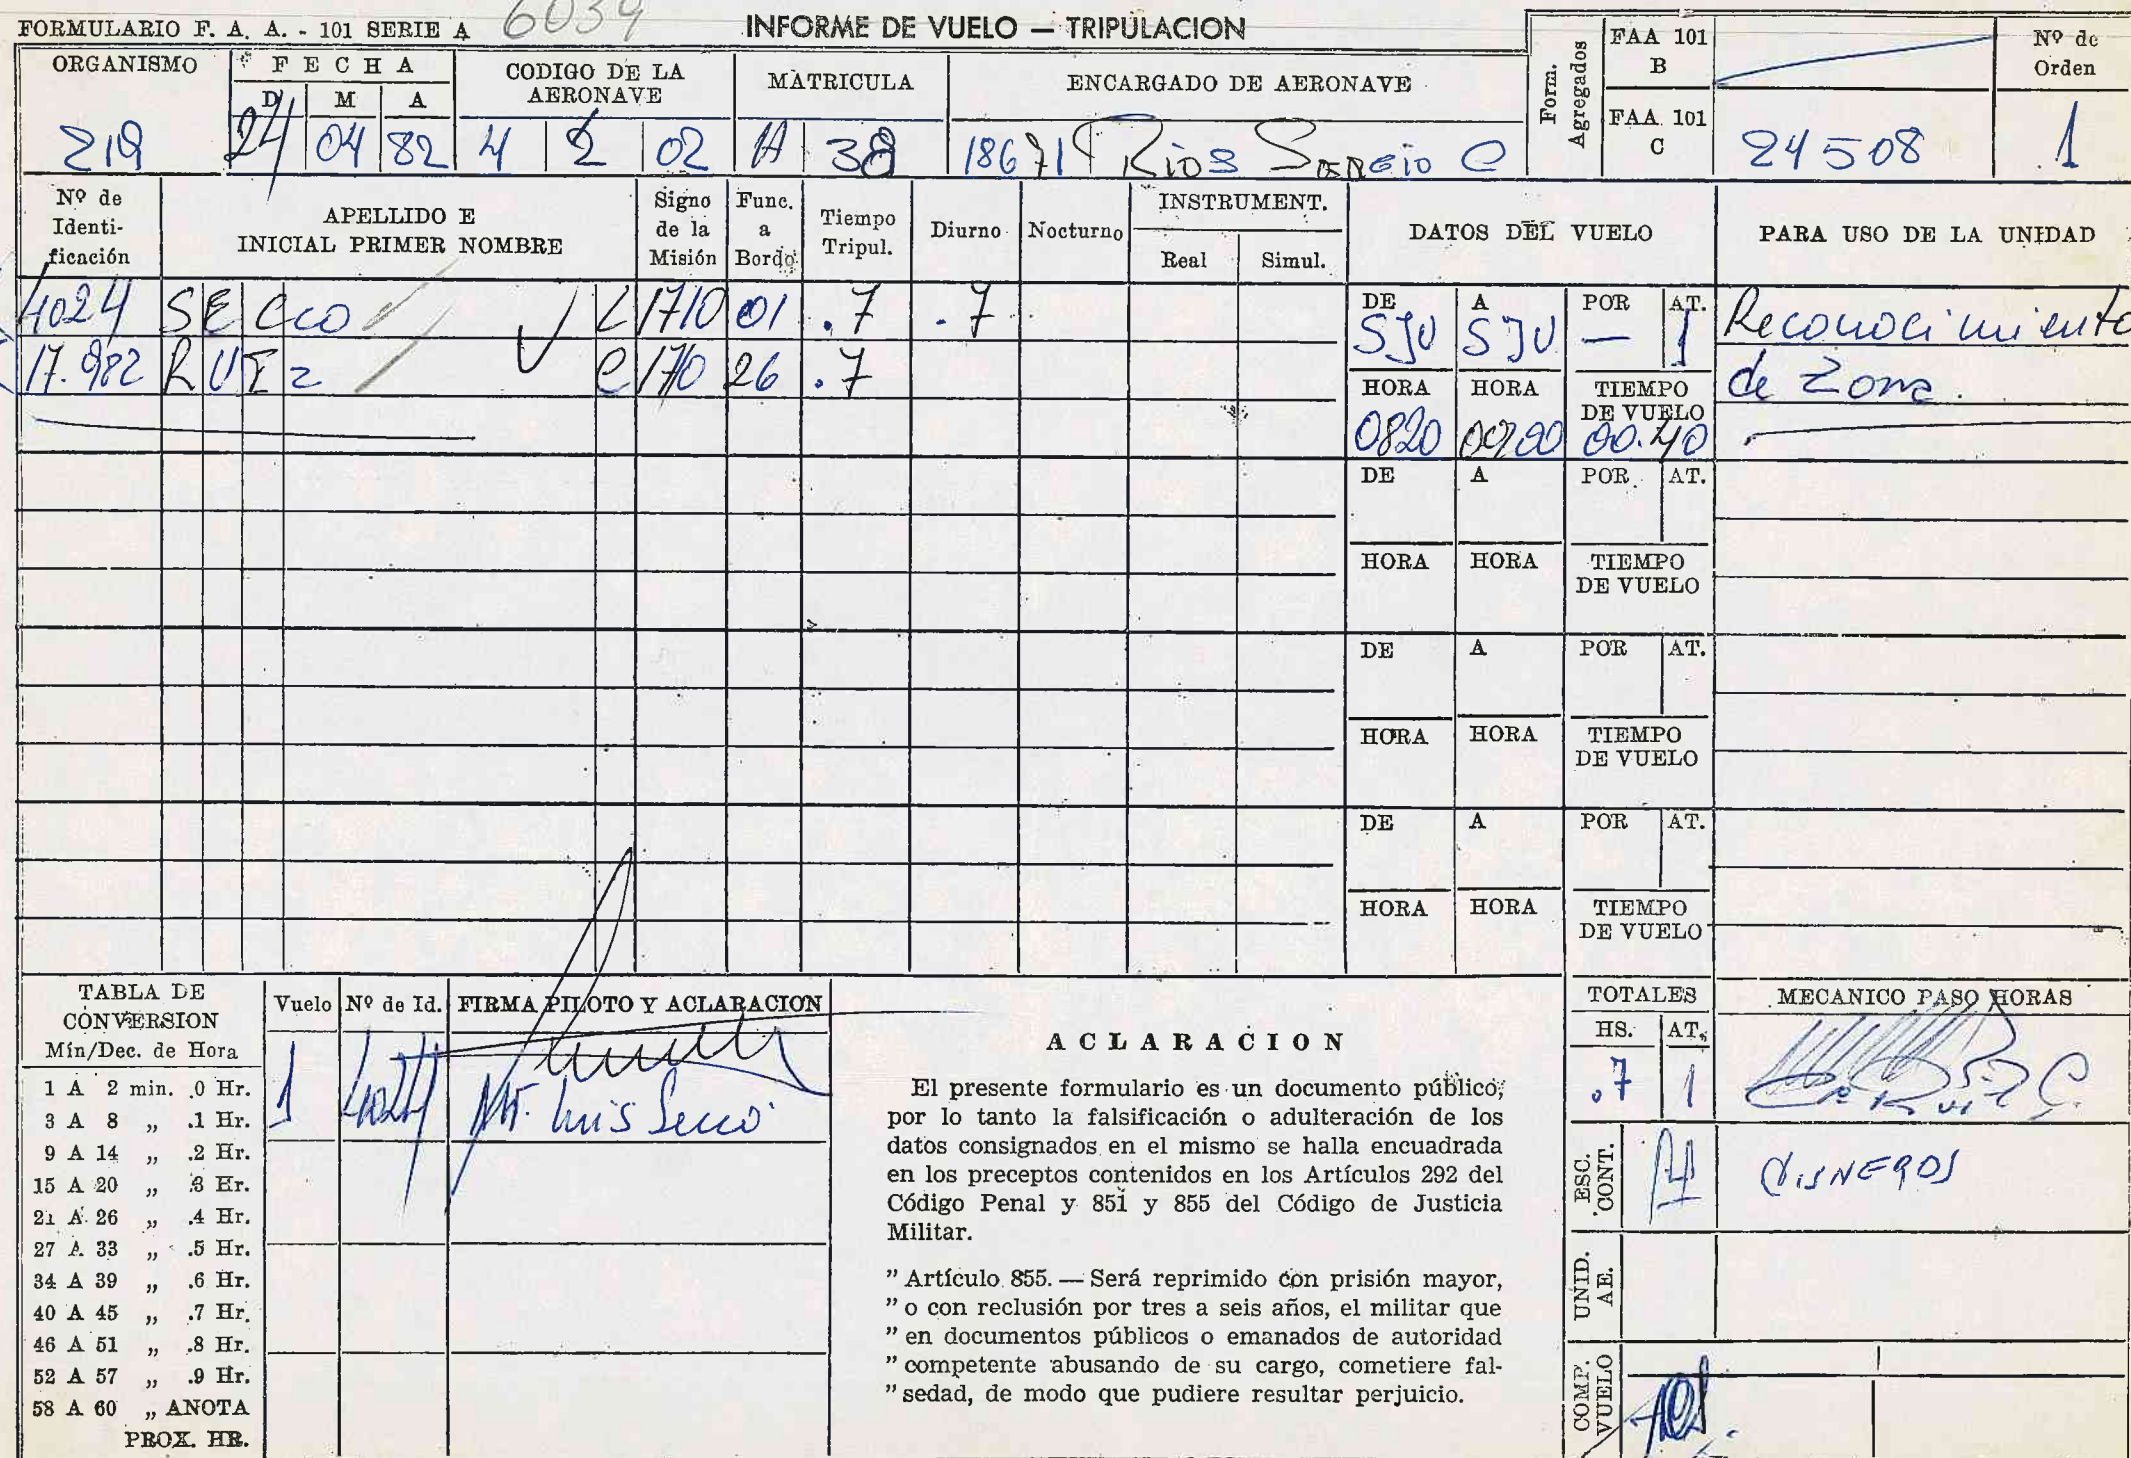 6034
FORMULARIO F. A. A. - 101 SERIE A
INFORME DE VUELO — TRIPULACION
ORGANISMO
219
FECHA
D M A
24 04 82
CODIGO DE LA AERONAVE
4 2 02
MATRICULA
A 38
ENCARGADO DE AERONAVE
18671 Rios Sergio C
Form. Agregados
FAA 101 B
FAA 101 C
24508
Nº de Orden
1
Nº de Identificación
APELLIDO E INICIAL PRIMER NOMBRE
Signo de la Misión
Func. a Bordo
Tiempo Tripul.
Diurno
Nocturno
INSTRUMENT.
Real Simul.
DATOS DEL VUELO
PARA USO DE LA UNIDAD
4024 SECCO L 1710 01 .7 .7
17.982 RUIZ C 1710 26 .7
DE A POR AT.
SJU SJU — 1
HORA HORA TIEMPO DE VUELO
0820 0900 00.40
Reconocimiento
de Zona.
DE A POR AT.
HORA HORA TIEMPO DE VUELO
DE A POR AT.
HORA HORA TIEMPO DE VUELO
DE A POR AT.
HORA HORA TIEMPO DE VUELO
TABLA DE CONVERSION
Mín/Dec. de Hora
1 A 2 min. .0 Hr.
3 A 8 „ .1 Hr.
9 A 14 „ .2 Hr.
15 A 20 „ .3 Hr.
21 A 26 „ .4 Hr.
27 A 33 „ .5 Hr.
34 A 39 „ .6 Hr.
40 A 45 „ .7 Hr.
46 A 51 „ .8 Hr.
52 A 57 „ .9 Hr.
58 A 60 „ ANOTA
PROX. HR.
Vuelo Nº de Id. FIRMA PILOTO Y ACLARACION
1 4024
Luis Secco
ACLARACION
El presente formulario es un documento público,
por lo tanto la falsificación o adulteración de los
datos consignados en el mismo se halla encuadrada
en los preceptos contenidos en los Artículos 292 del
Código Penal y 851 y 855 del Código de Justicia
Militar.
” Artículo 855. — Será reprimido con prisión mayor,
” o con reclusión por tres a seis años, el militar que
” en documentos públicos o emanados de autoridad
” competente abusando de su cargo, cometiere fal-
” sedad, de modo que pudiere resultar perjuicio.
TOTALES
HS. AT.
.7 1
MECANICO PASO HORAS
Ruiz C.
ESC. CONT.
CISNEROS
UNID. AE.
COMP. VUELO